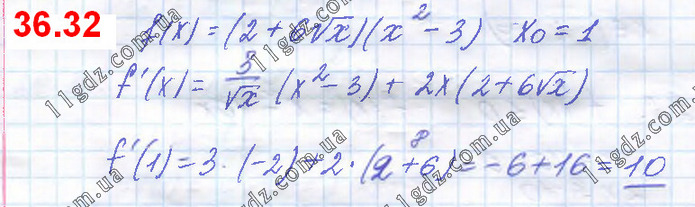 36.32
f(x) = (2 + 6√x)(x² - 3) x₀ = 1
f'(x) = 3/√x (x² - 3) + 2x(2 + 6√x)
8
f'(1) = 3 · (-2) + 2 · (2 + 6) = -6 + 16 = 10
11gdz.com.ua
11gdz.com.ua
11gdz.com.ua
11gdz.com.ua
11gdz.com.ua
11gdz.com.ua